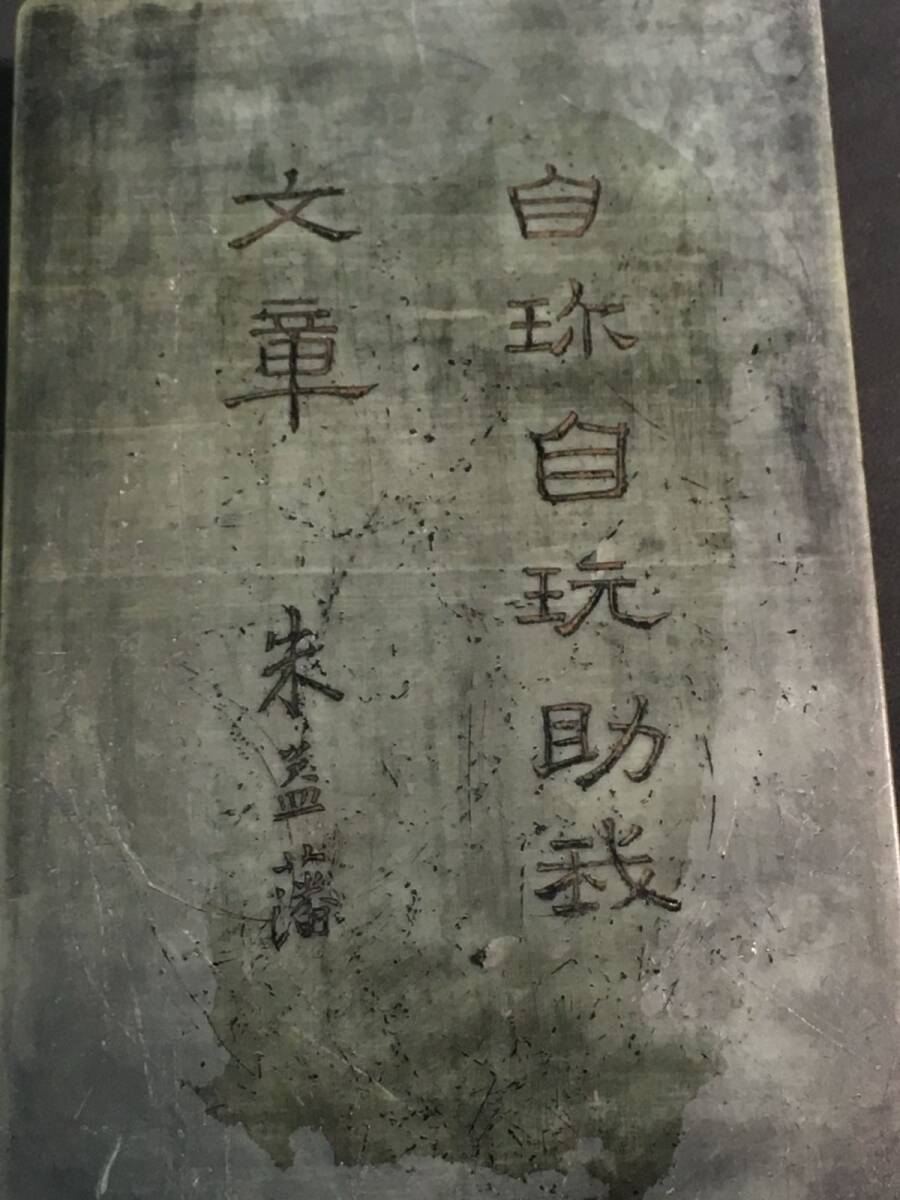 自珎自玩助我
文章
朱益藩